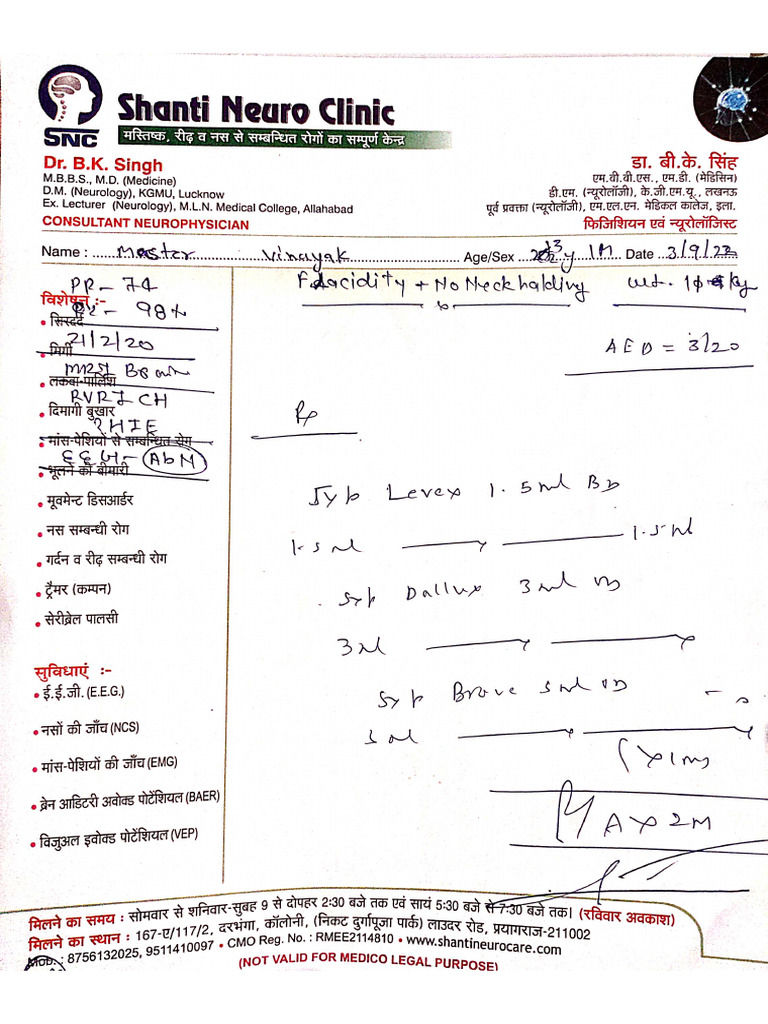 Shanti Neuro Clinic
SNC
मस्तिष्क, रीढ़ व नस से सम्बन्धित रोगों का सम्पूर्ण केन्द्र
Dr. B.K. Singh
M.B.B.S., M.D. (Medicine)
D.M. (Neurology), KGMU, Lucknow
Ex. Lecturer (Neurology), M.L.N. Medical College, Allahabad
CONSULTANT NEUROPHYSICIAN
डा. बी.के. सिंह
एम.बी.बी.एस., एम.डी. (मेडिसिन)
डी.एम. (न्यूरोलॉजी), के.जी.एम.यू., लखनऊ
पूर्व प्रवक्ता (न्यूरोलॉजी), एम.एल.एन. मेडिकल कालेज, इला.
फिजिशियन एवं न्यूरोलॉजिस्ट
Name : Master Vinayak Age/Sex y / M Date 3/9/22
PR - 74
98
21/2/20
MRI Brain
EEG - AbN
विशेषज्ञ :-
सिरदर्द
मिर्गी
लकवा-पार्लिश
दिमागी बुखार
मांस-पेशियों से सम्बन्धित रोग
भूलने की बीमारी
मूवमेन्ट डिसआर्डर
नस सम्बन्धी रोग
गर्दन व रीढ़ सम्बन्धी रोग
ट्रैमर (कम्पन)
सेरीब्रेल पालसी
सुविधाएं :-
ई.ई.जी. (E.E.G.)
नसों की जाँच (NCS)
मांस-पेशियों की जाँच (EMG)
ब्रेन आडिटरी अवोक्ड पोटेंशियल (BAER)
विजुअल इवोक्ड पोटेंशियल (VEP)
Flacidity + No Neck holding wt. kg
AED = 3/20
Rx
Syp Levex 1.5 ml BD
1.5 ml 1.5 ml
Syp Dallux 3 ml
3 ml
Syp Brave 3 ml
3 ml
A x 2M
मिलने का समय : सोमवार से शनिवार-सुबह 9 से दोपहर 2:30 बजे तक एवं सायं 5:30 बजे से 7:30 बजे तक। (रविवार अवकाश)
मिलने का स्थान : 167-ए/117/2, दरभंगा, कॉलोनी, (निकट दुर्गापूजा पार्क) लाउदर रोड, प्रयागराज-211002
Mob.: 8756132025, 9511410097 • CMO Reg. No. : RMEE2114810 • www.shantineurocare.com
(NOT VALID FOR MEDICO LEGAL PURPOSE)